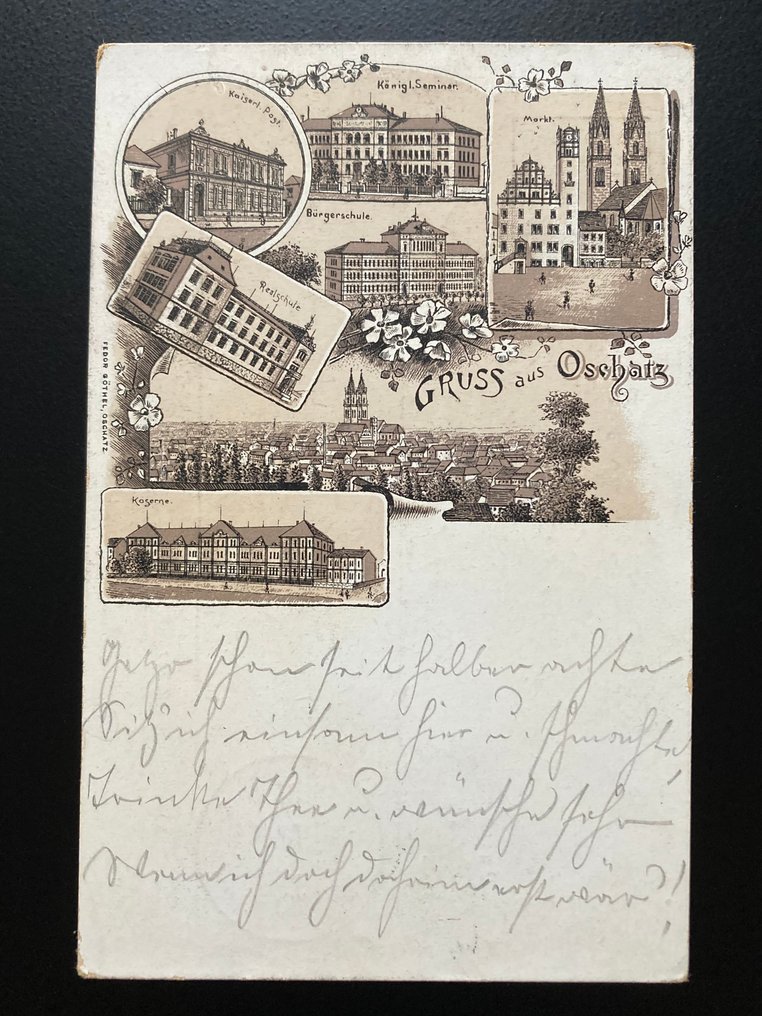 Kaiserl. Post.
Königl. Seminar.
Markt.
Bürgerschule.
Realschule
GRUSS aus Oschatz
FEDOR GÖTHEL, OSCHATZ
Kaserne.
Jetzo schon seit halber achte
Sitz' ich einsam hier u. schmachte,
Trinke Thee u. wünsche sehr
Wenn ich doch daheim erst wär'!